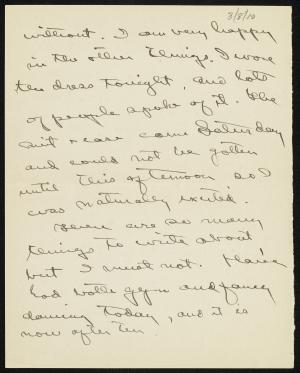 3/8/10
without. I am very happy
in the other things. I wore
the dress tonight, and lots
of people spoke of it. The
suit case came Saturday
and could not be gotten
until this afternoon so I
was naturally excited.
There are so many
things to write about
but I must not. Having
had both gym and fancy
dancing today, and it is
now after ten.